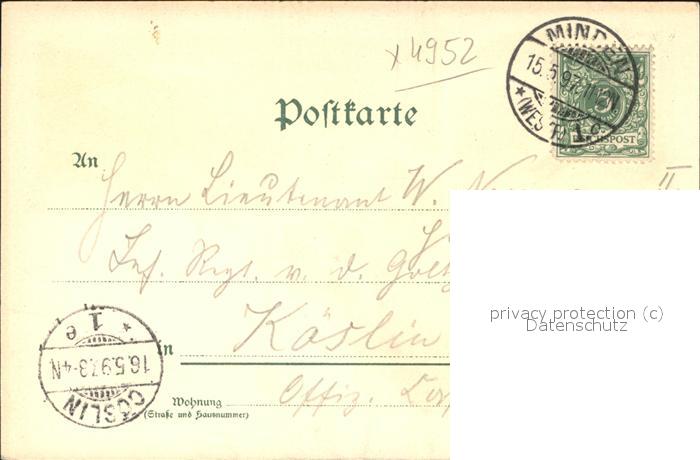 x 4952
MINDEN
15.5.97.
* (WESTF.) 1 c.
REICHSPOST
Poſtkarte
An
Herrn Lieutenant W.
II.
Inf. Regt. v. d. Goltz
privacy protection (c)
Datenschutz
in Köslin
Wohnung Offiz.
(Straße und Hausnummer)
CÖSLIN
16.5.97.3-4N
* 1 e